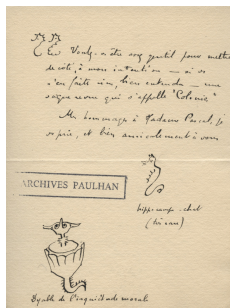 Voulez-vous être assez gentil pour mettre
de côté, à mon intention — si
— une
vague revue qui s'appelle "Colonie"
Mes hommages à Madame Pascal, je
vous prie, et bien amicalement à vous
ARCHIVES PAULHAN
hippocampe-chat
(oiseau)
Diable de l'inquiétude morale